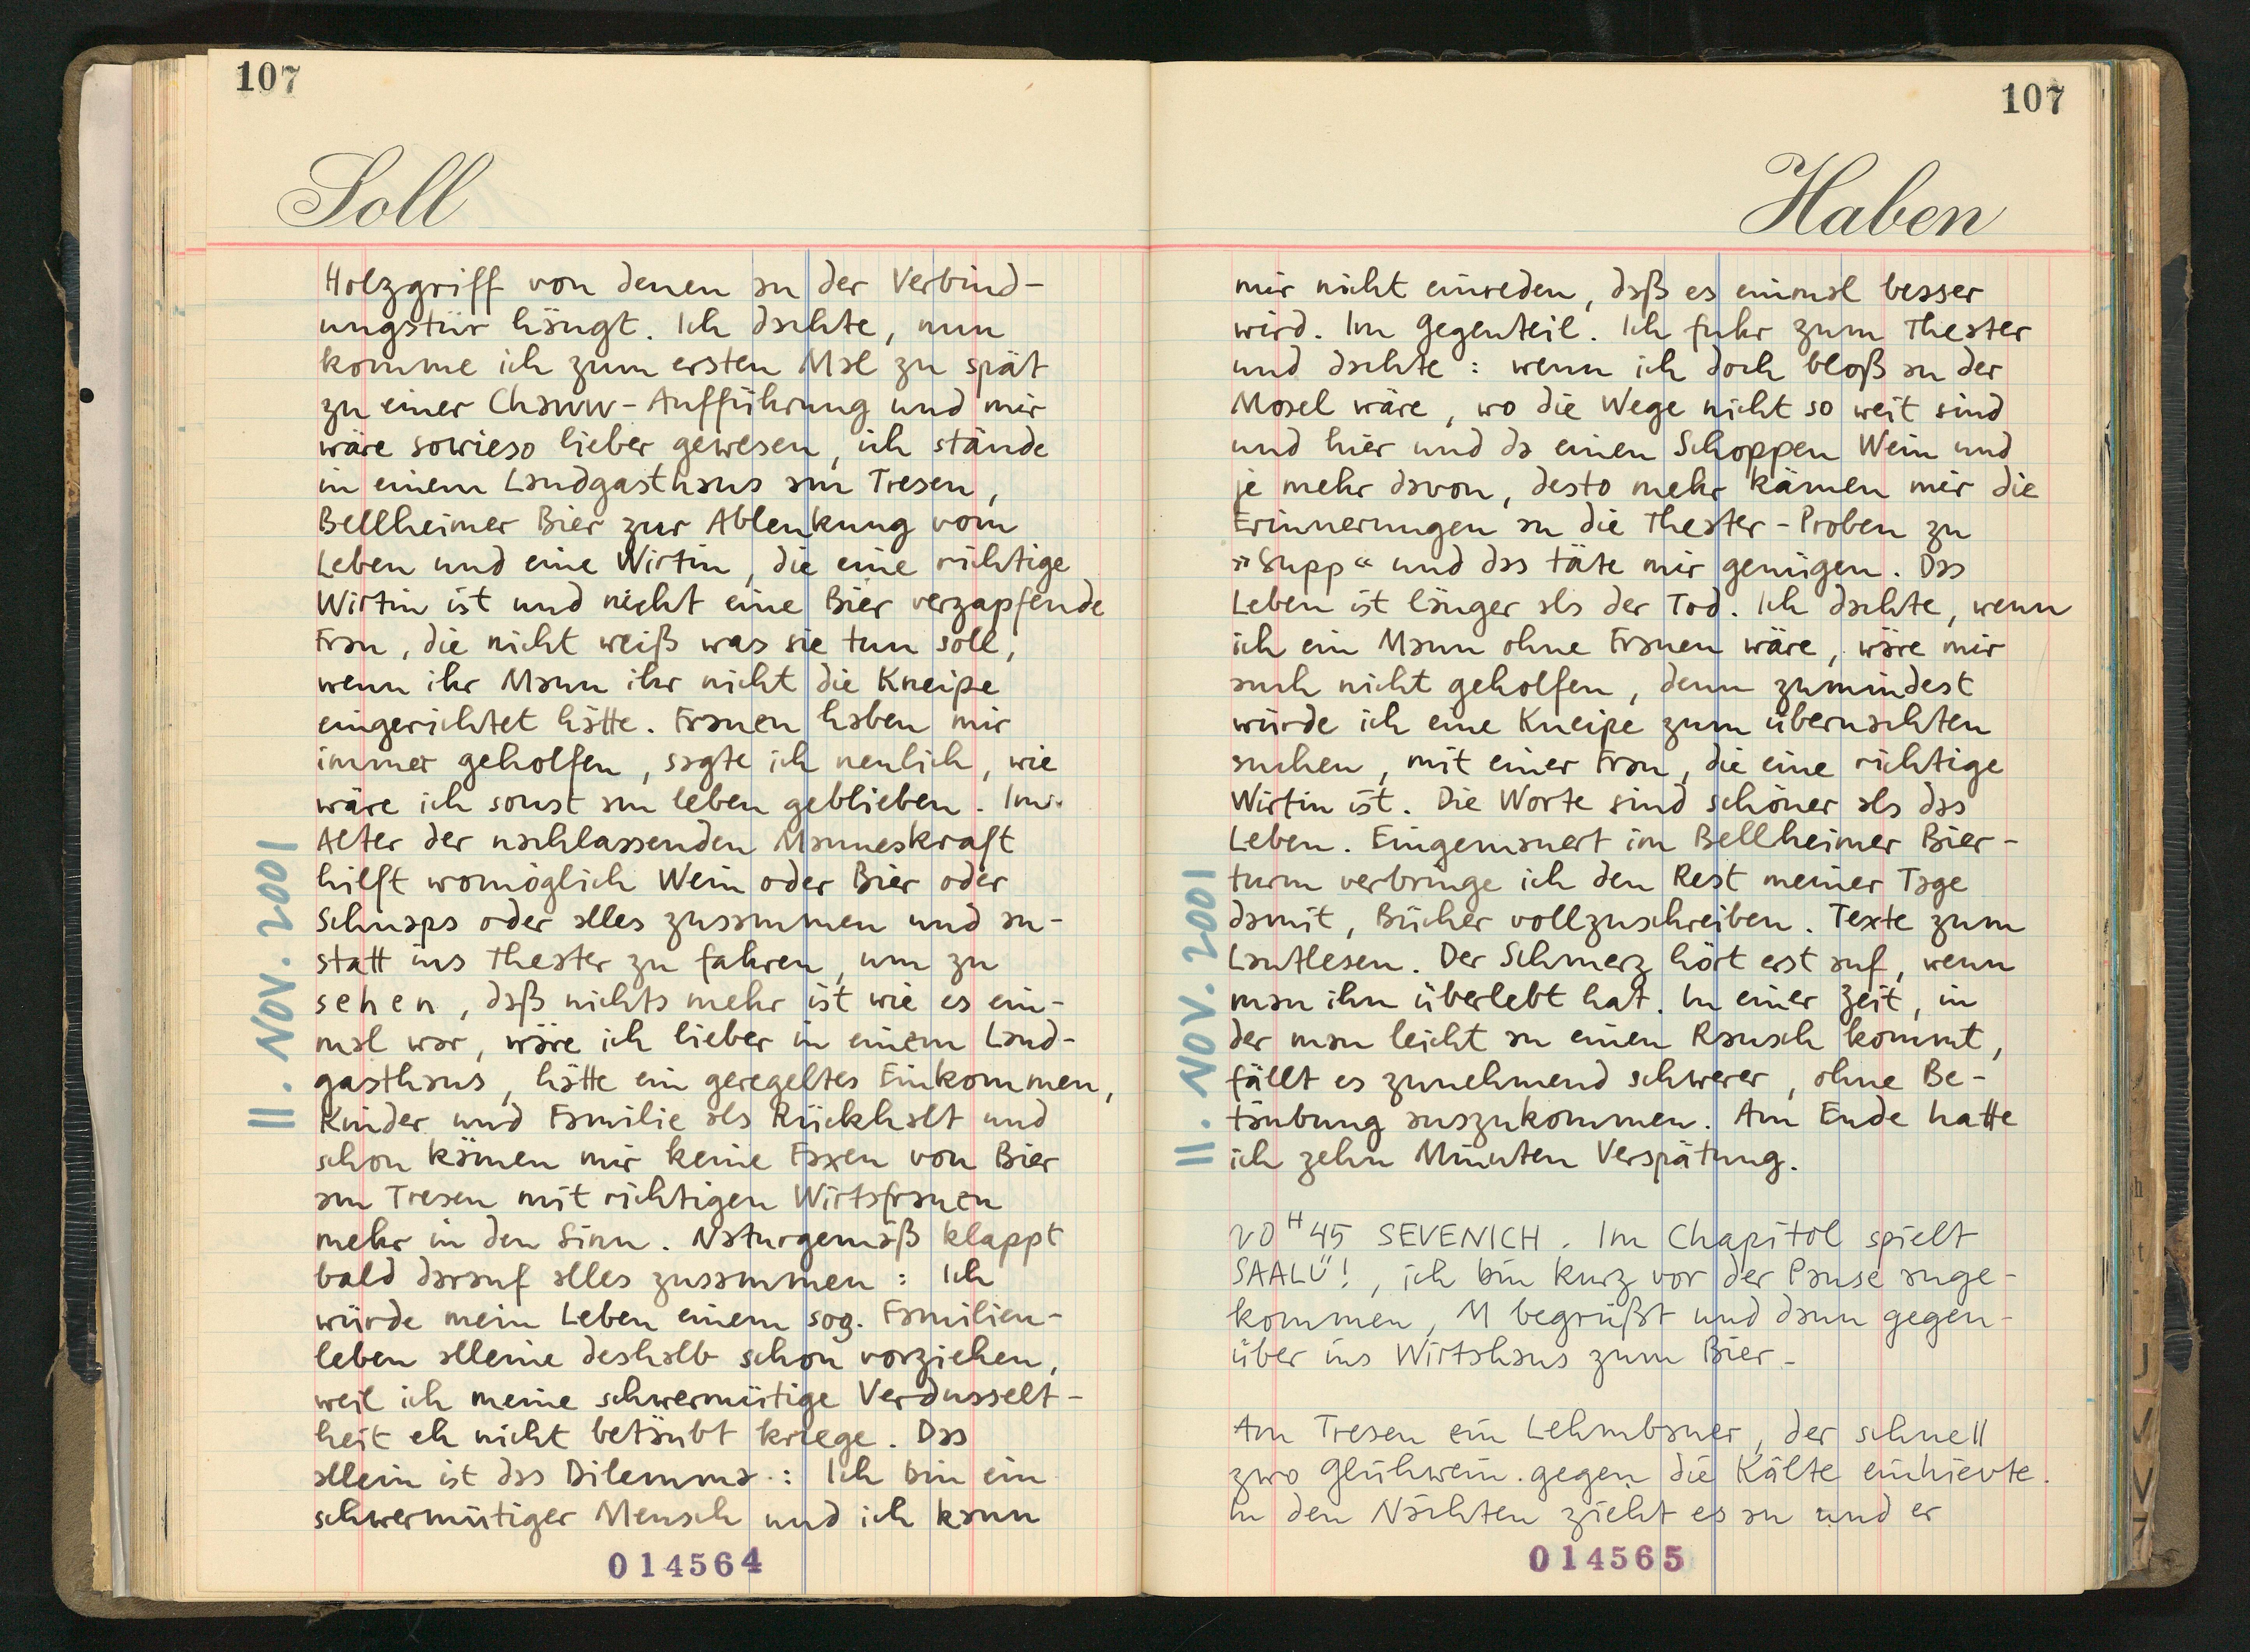 107
Soll
Holzgriff von denen an der Verbind-
ungstür hängt. Ich dachte, nun
komme ich zum ersten Mal zu spät
zu einer Chaww-Aufführung und mir
wäre sowieso lieber gewesen, ich stände
in einem Landgasthaus am Tresen,
Bellheimer Bier zur Ablenkung vom
Leben und eine Wirtin, die eine richtige
Wirtin ist und nicht eine Bier verzapfende
Frau, die nicht weiß was sie tun soll,
wenn ihr Mann ihr nicht die Kneipe
eingerichtet hätte. Frauen haben mir
immer geholfen, sagte ich neulich, wie
wäre ich sonst am leben geblieben. Im
Alter der nachlassenden Manneskraft
hilft womöglich Wein oder Bier oder
Schnaps oder alles zusammen und an-
statt ins Theater zu fahren, um zu
sehen, daß nichts mehr ist wie es ein-
mal war, wäre ich lieber in einem Land-
gasthaus, hätte ein geregeltes Einkommen,
Kinder und Familie als Rückhalt und
schon kämen mir keine Faxen von Bier
am Tresen mit richtigen Wirtsfrauen
mehr in den Sinn. Naturgemäß klappt
bald darauf alles zusammen: Ich
würde mein Leben einem sog. Familien-
leben alleine deshalb schon vorziehen,
weil ich meine schwermütige Verdusselt-
heit eh nicht betäubt kriege. Das
allein ist das Dilemma: Ich bin ein
schwermütiger Mensch und ich kann
11. NOV. 2001
014564
107
Haben
mir nicht einreden, daß es einmal besser
wird. Im Gegenteil. Ich fuhr zum Theater
und dachte: wenn ich doch bloß an der
Mosel wäre, wo die Wege nicht so weit sind
und hier und da einen Schoppen Wein und
je mehr davon, desto mehr kämen mir die
Erinnerungen an die Theater-Proben zu
»Supp« und das täte mir genügen. Das
Leben ist länger als der Tod. Ich dachte, wenn
ich ein Mann ohne Frauen wäre, wäre mir
auch nicht geholfen, denn zumindest
würde ich eine Kneipe zum übernachten
suchen, mit einer Frau, die eine richtige
Wirtin ist. Die Worte sind schöner als das
Leben. Eingemauert im Bellheimer Bier-
turm verbringe ich den Rest meiner Tage
damit, Bücher vollzuschreiben. Texte zum
Lautlesen. Der Schmerz hört erst auf, wenn
man ihn überlebt hat. In einer Zeit, in
der man leicht an einen Rausch kommt,
fällt es zunehmend schwerer, ohne Be-
täubung auszukommen. Am Ende hatte
ich zehn Minuten Verspätung.
20 H 45 SEVENICH. Im Chapitol spielt
SAALÜ!, ich bin kurz vor der Pause ange-
kommen, M begrüßt und dann gegen-
über ins Wirtshaus zum Bier-
Am Tresen ein Lehmbauer, der schnell
zwo Glühwein gegen die Kälte einhievte.
In den Nächten zieht es an und er
11. NOV. 2001
014565